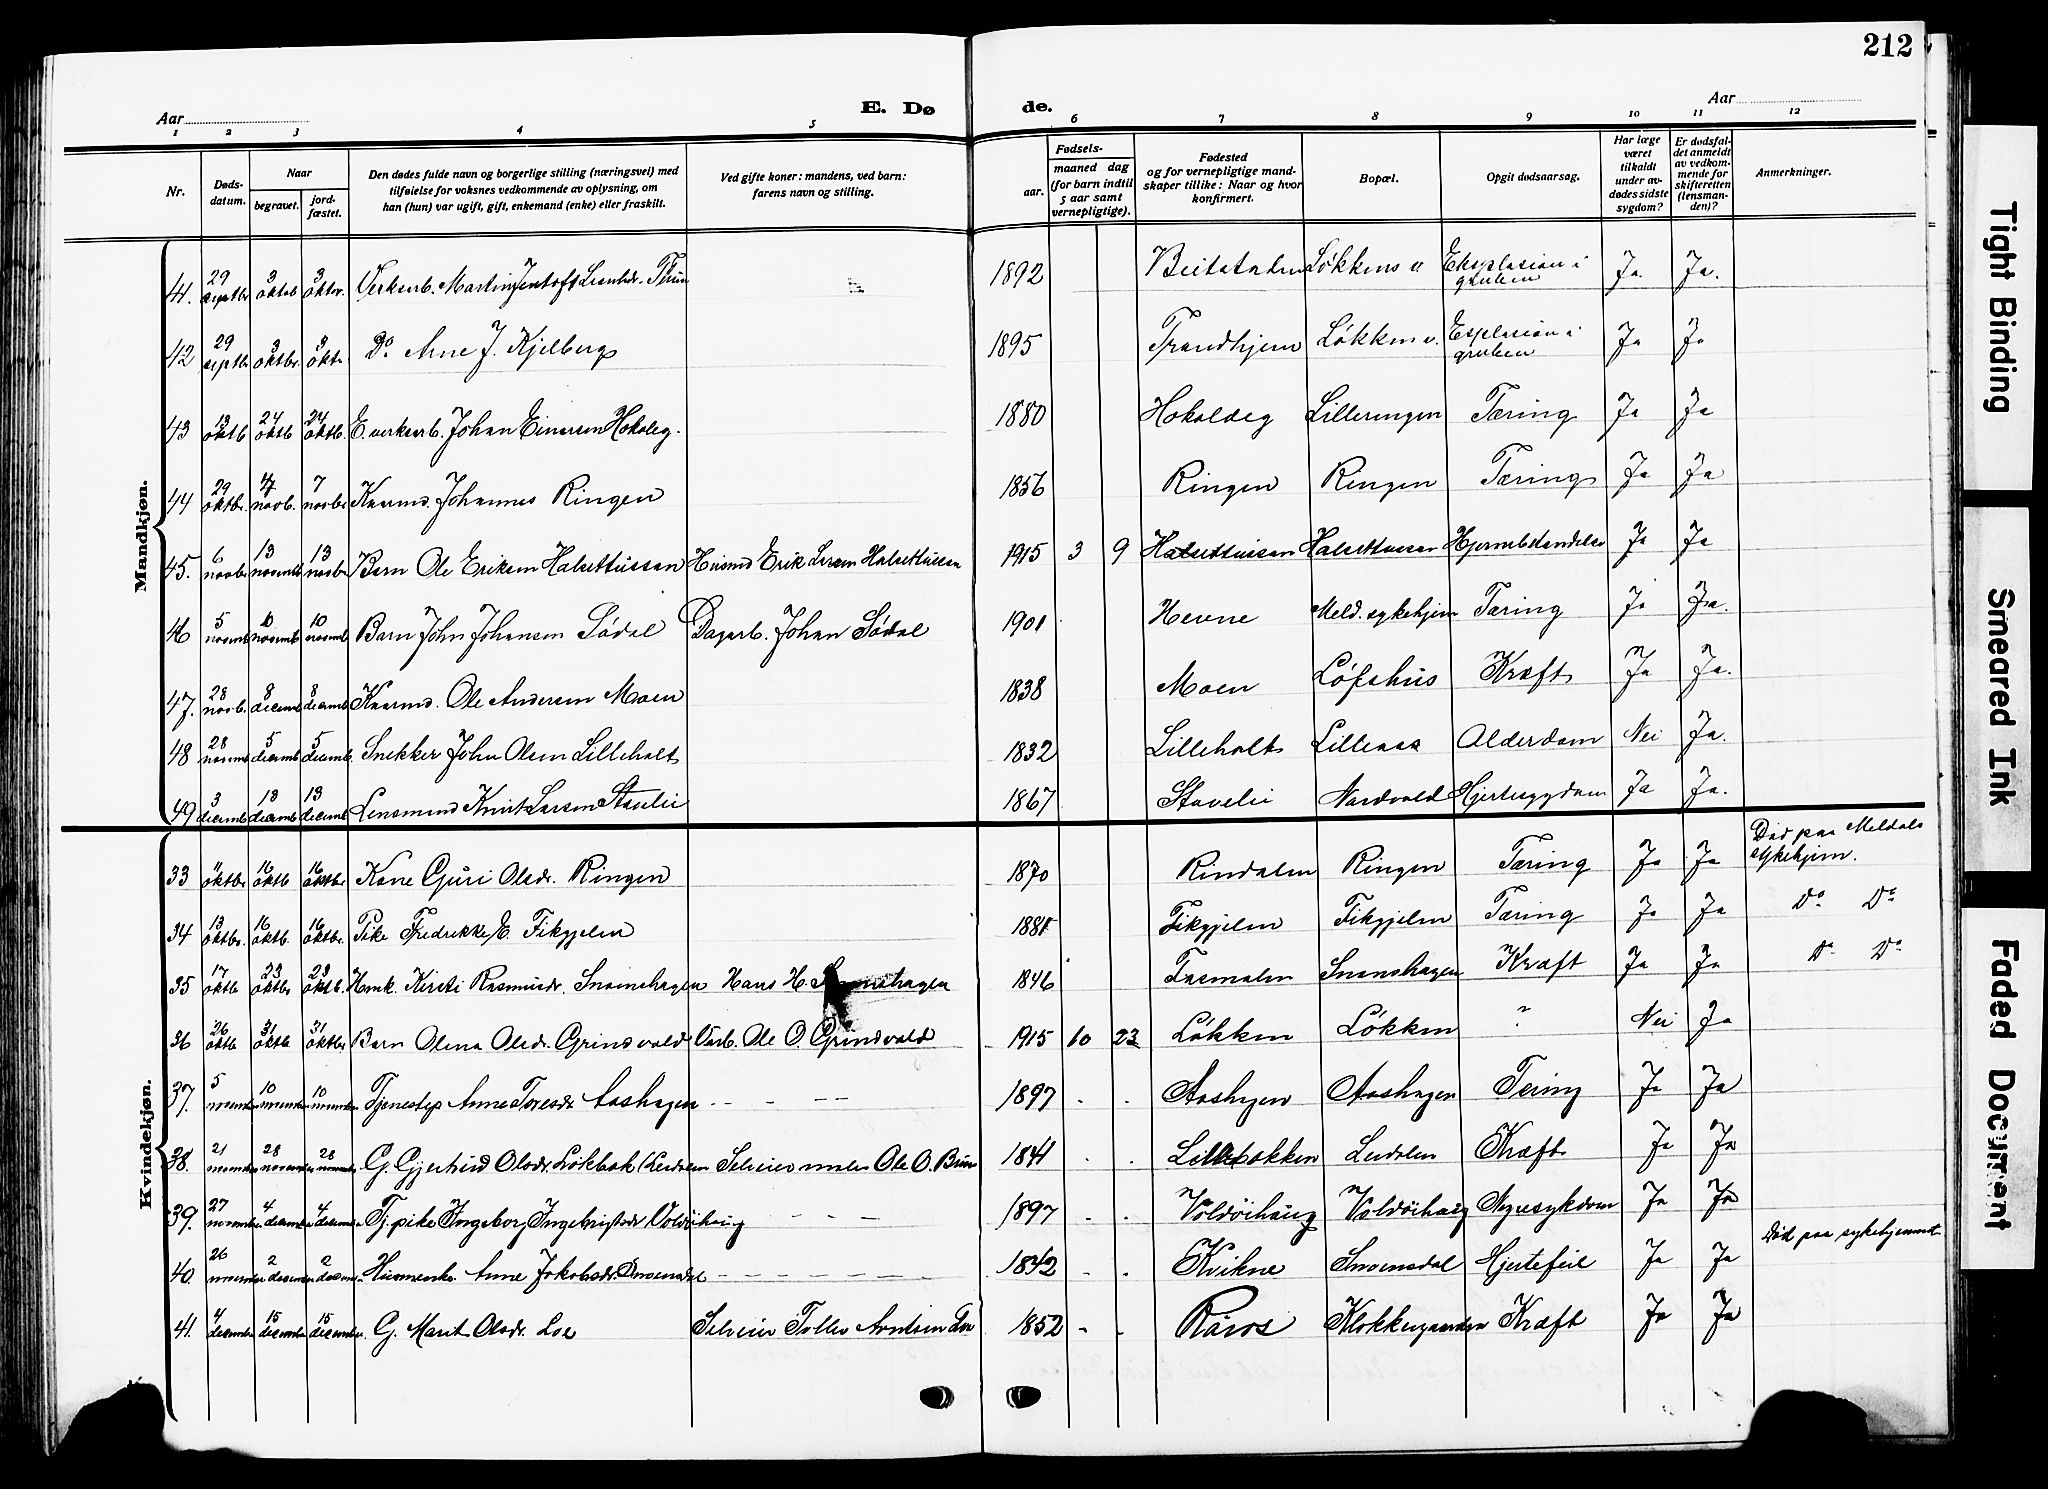 212
E. Dø de.
Aar
Aar
1 2 3 4 5 6 7 8 9 10 11 12
Nr.
Døds-
datum.
Naar
begravet.
jord-
fæstet.
Den dødes fulde navn og borgerlige stilling (næringsvei) med
tilføielse for voksnes vedkommende av oplysning, om
han (hun) var ugift, gift, enkemand (enke) eller fraskilt.
Ved gifte koner: mandens, ved barn:
farens navn og stilling.
Fødsels-
aar.
maaned dag
(for barn indtil
5 aar samt
vernepligtige).
Fødested
og for vernepligtige mand-
skaper tillike: Naar og hvor
konfirmert.
Bopæl.
Opgit dødsaarsag.
Har læge
været
tilkaldt
under av-
dødes sidste
sygdom?
Er dødsfal-
det anmeldt
av vedkom-
mende for
skifteretten
(lensman-
den)?
Anmerkninger.
Mandkjøn.
41. 29 septbr 3 oktob 3 oktbr. Verksarb. Martin Jentoft 1892 Beitstaden Løkkens v Eksplosion i gruben Ja Ja.
42 29 septb 3 oktbr. 3 oktr Do. Arne J. Kjelberg 1895 Trondhjem Løkken v. Explosion i gruben Ja Ja
43 13 oktb 24 oktb 24 oktb. E. verksarb. Johan Einarsen Hokoleg. 1880 Hokoldeg Lilleringen Tæring Ja Ja
44 29 oktbr. 7 novb. 7 novbr Kaarmd. Johannes Ringen 1856 Ringen Ringen Tæring Ja Ja
45. 6 novbr 13 novemb 13 novbr Barn Ole Eriksen Halsettussan Husmd Erik Larsen Halsettussan 1915 3 9 Halsettussan Halsettussan Hjernebetændelse Ja Ja
46 5 novemb 10 novemb 10 novemb Barn John Johansen Sødal Dagarb. Johan Sødal 1901 Hevne Meld. sykehjem Tæring Ja Ja.
47. 28 novb. 8 decemb 8 decemb Kaarmd. Ole Andersen Moen 1838 Moen Løfshus Kræft Ja Ja.
48 28 novemb 5 decemb 5 decemb. Snekker John Olsen Lilleholt 1832 Lilleholt Lilleaas Alderdom Nei Ja.
49 3 decemb 13 decemb 13 decemb Lensmand Knut Larsen Stavlie 1867 Stavlie Nordvold Hjertesygdom Ja Ja.
Kvindekjøn.
33 11 oktbr 16 oktb 16 oktbr Kone Guri Olsdr. Ringen 1870 Rindalen Ringen Tæring Ja Ja Død paa Meldals sykehjem.
34 13 oktbr. 16 oktb. 16 oktbr. Pike Fredrikke E. Fikkjelen 1881 Fikkjelen Fikkjelen Tæring Ja Ja Do Do
35 17 oktb 23 oktbr 23 oktb. Husmk. Kirsti Rasmusdr. Snoenshagen Hans H. Snoenshagen 1846 Snoenshagen Kræft Ja Ja Do Do
36 26 oktb 31 oktb 31 oktbr. Barn Olina Olsdr. Grindvold Varb. Ole O. Grindvold 1915 10 23 Løkken Løkken ? Nei Ja
37. 5 novembr 10 novembr 10 novembr Tjenestep Anne Toresdr Aashagen - - - - 1897 - - Aashagen Aashagen Tering Ja Ja
38. 21 novembr 28 november 28 november G. Gjertrud Olsdr. Løkbak (Lerdalen Selveier Ole O. 1841 - - Løkbakken Lerdalen Kræft Ja Ja
39. 27 november 4 decemb 4 decemb Tj.pike Ingeborg Ingebrigtsdr Voldøihaug - - - 1897 - - Voldøihaug Voldøihaug Nyresykdom Ja Ja
40. 26 november 2 decemr 2 decemr Husmenk. Anne Jakobsdr. Snoensdal - - - - 1842 - - Kvikne Snoensdal Hjertefeil Ja Ja Død paa sykehjemmet
41. 4 decembr 15 decembr 15 decembr G. Marit Olsdr. Loe Selveier Tollev Arntsen Loe 1852 - - Røros Klokkergaarden Kræft Ja Ja
Tight Binding
Smeared Ink
Faded Document